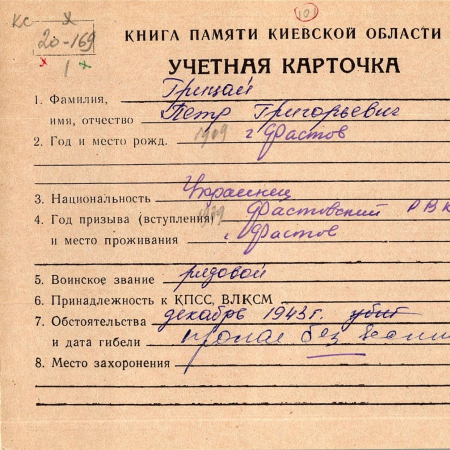 КС
20-169
1
10
КНИГА ПАМЯТИ КИЕВСКОЙ ОБЛАСТИ
УЧЕТНАЯ КАРТОЧКА
1. Фамилия, Грицай
имя, отчество Петр Григорьевич
2. Год и место рожд. 1909 г Фастов
3. Национальность Украинец
4. Год призыва (вступления) Фастовский РВК
и место проживания г. Фастов
5. Воинское звание рядовой
6. Принадлежность к КПСС, ВЛКСМ
7. Обстоятельства декабрь 1943г. убит
и дата гибели пропал без вести
8. Место захоронения